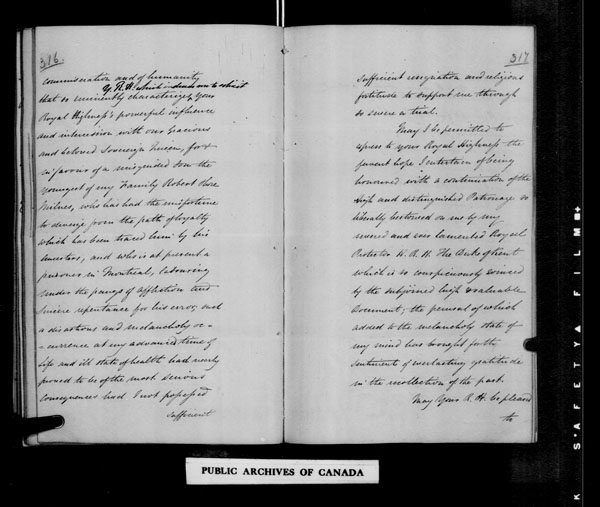 316.
commiseration and of humanity
Y. R. H. which induces me to solicit
that so eminently characterizes your
Royal Highness's powerful influence
and intercession with our Gracious
and beloved Sovereign Queen, for &
in favour of a misguided Son the
youngest of my Family Robert Shore
Milnes, who has had the misfortune
to diverge from the path of loyalty
which has been traced him by his
Ancestors, and who is at present a
prisoner in Montreal, labouring
under the pangs of affliction and
sincere repentance for his error, such
a disastrous and melancholy oc=
=currence at my advanced time of
life and ill state of health had nearly
proved to be of the most serious
consequences had I not possessed
sufficient
317
sufficient resignation and religious
fortitude to support me through
so severe a trial.
May I be permitted to
express to your Royal Highness the
fervent hope I entertain of being
honoured with a continuation of the
high and distinguished Patronage so
liberally bestowed on me by my
revered and ever lamented Royal
Protector H. R. H. The Duke of Kent
which is so conspicuously evinced
by the subjoined high & valuable
Document; the perusal of which
added to the melancholy state of
my mind has brought forth the
sentiments of everlasting gratitude
in the recollection of the past.
May Your R. H. be pleased
to
PUBLIC ARCHIVES OF CANADA
K SAFETY FILM